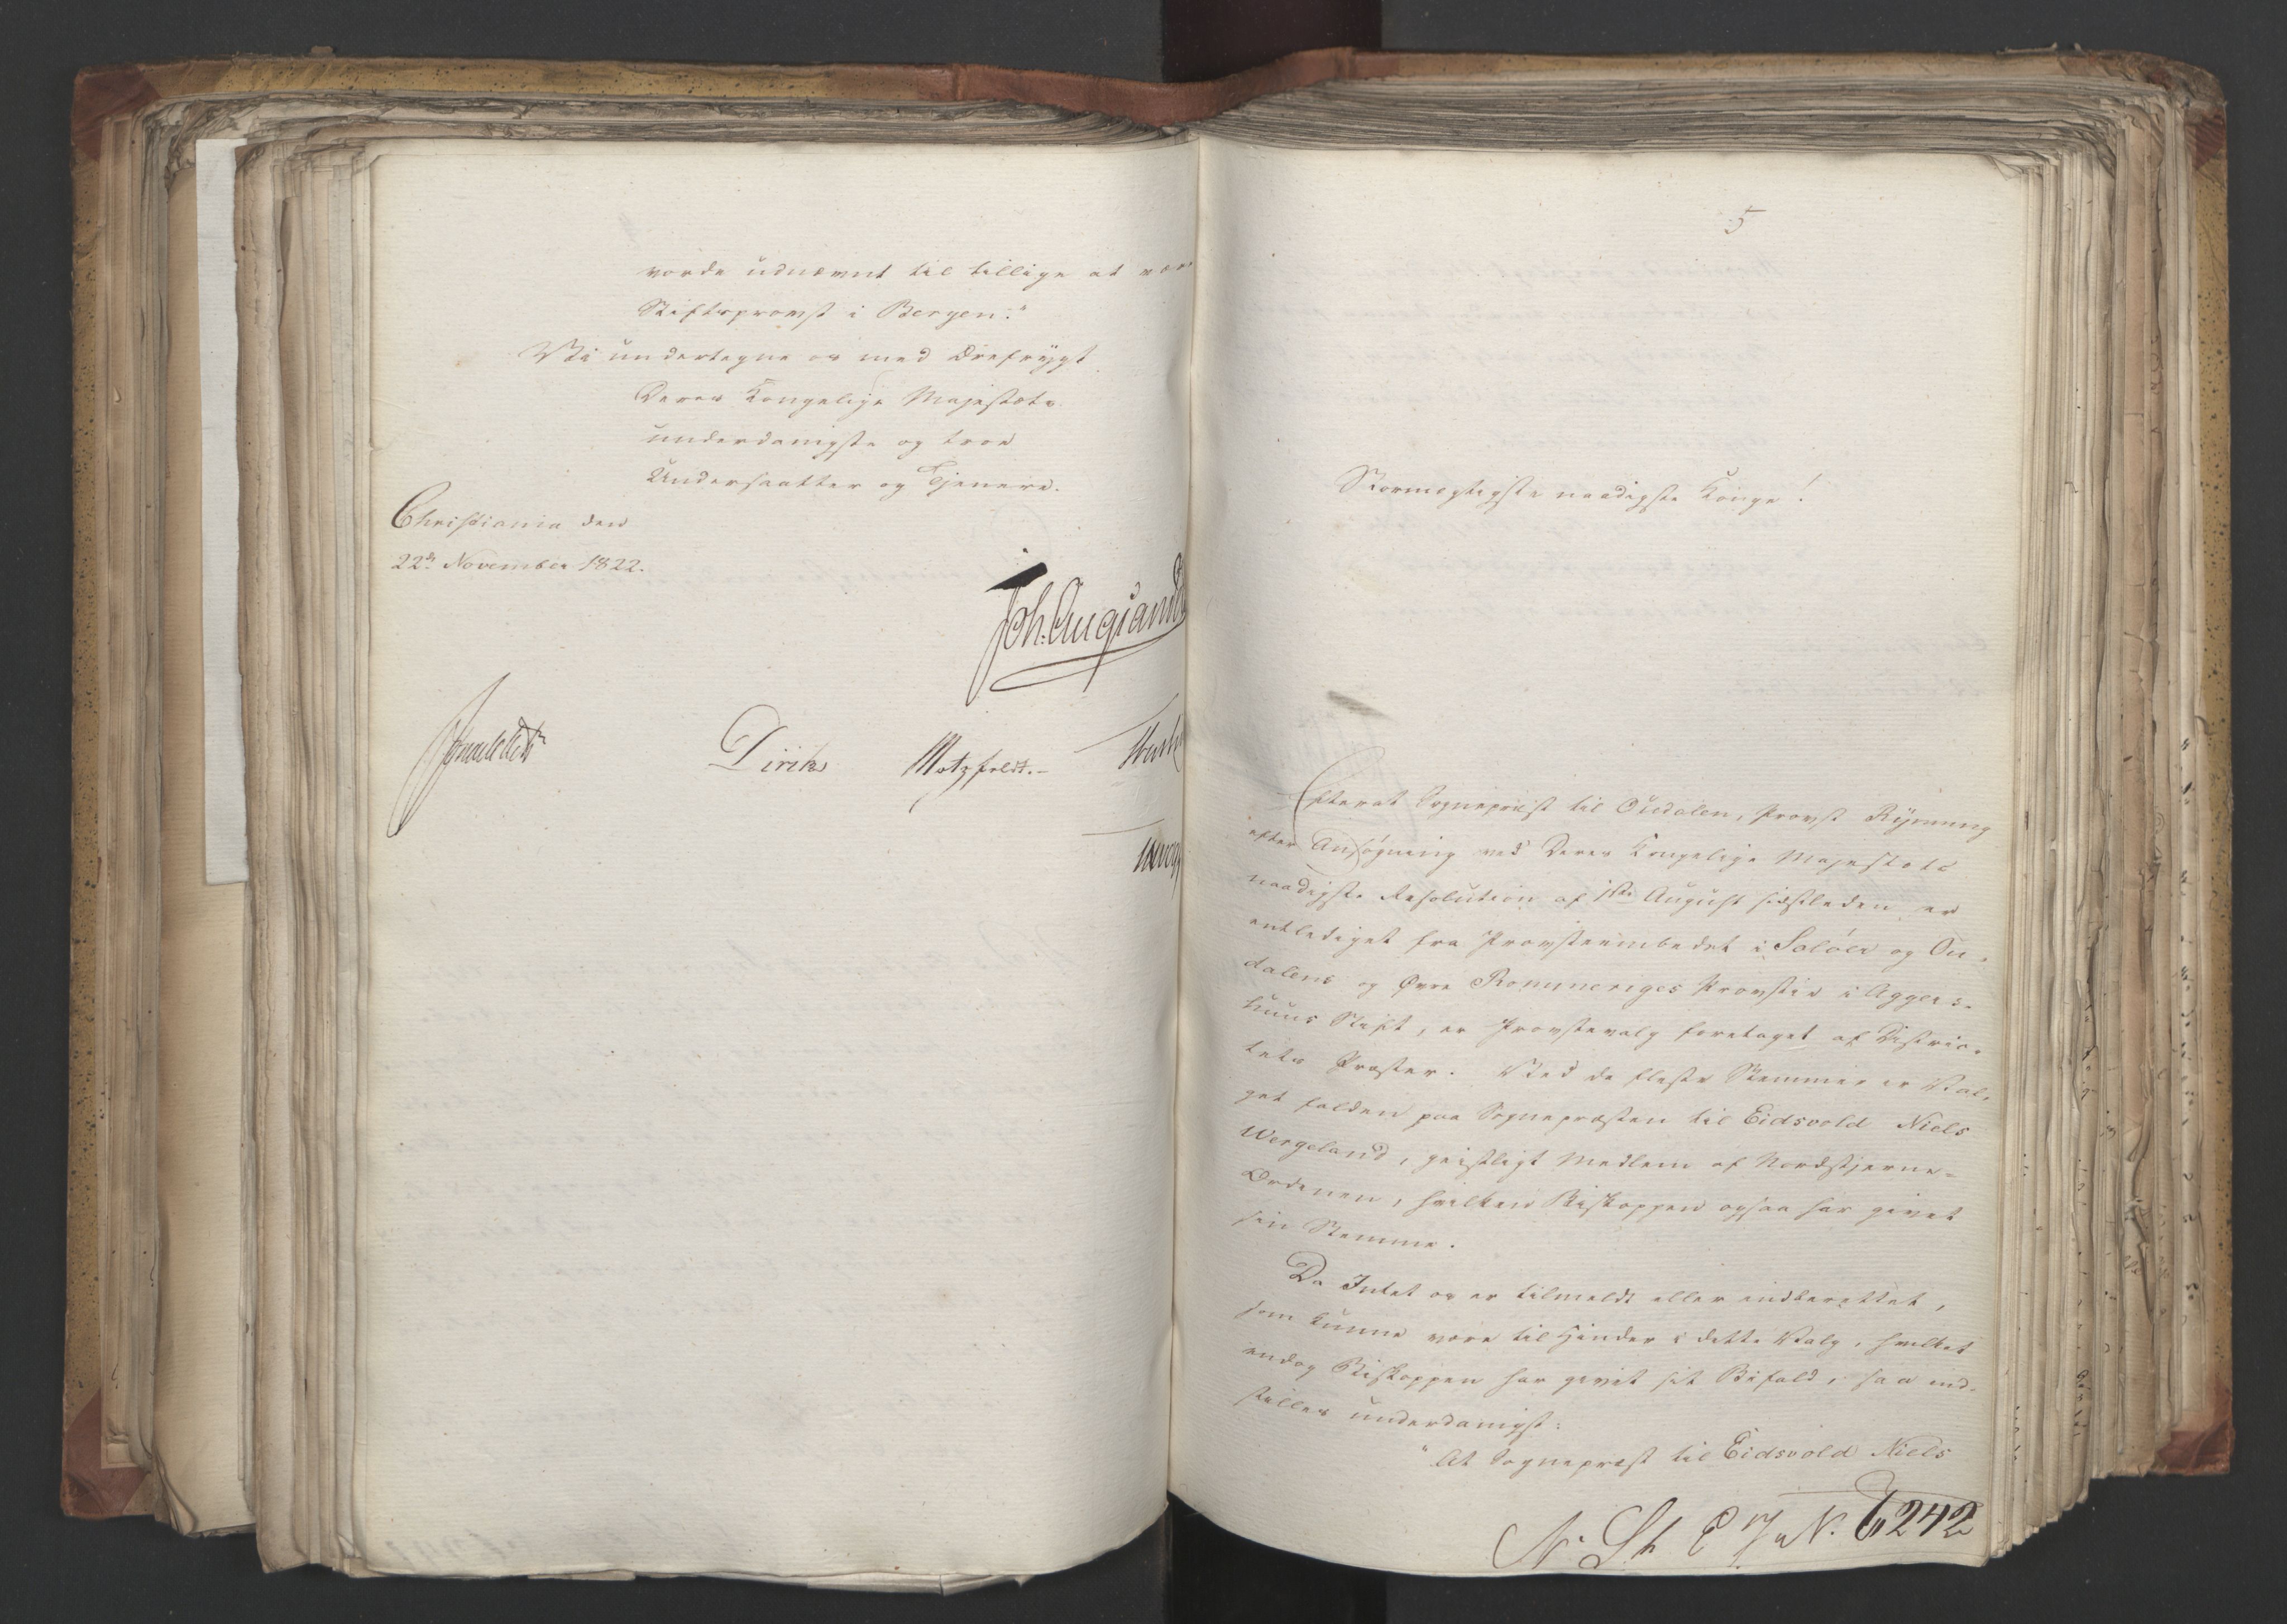 vorde udnævnt til tillige at være
Stiftsprovst i Bergen."
Vi undertegne os med Ærefrygt
Deres Kongelige Majestæts
underdanigste og troe
Undersaatter og Tjenere.
Christiania den
22de November 1822.
Joh. Aug. Sandels
Diriks Motzfeldt.
5
Stormægtigste naadigste Konge!
Efterat Sognepræst til Oudalen, Provst Rynning
efter Ansøgning ved Deres Kongelige Majestæts
naadigste Resolution af 1ste August sidstleden er
entlediget fra Provsteembedet i Soløer og Ou-
dalens og Øvre Rommeriges Provstie i Aggers-
huus Stift, er Provstevalg foretaget af Distric-
tets Præster. Ved de fleste Stemmer er Val-
get falden paa Sognepræsten til Eidsvold Niels
Wergeland, geistligt Medlem af Nordstjerne-
Ordenen, hvilken Biskoppen ogsaa har givet
sin Stemme.
Da Intet os er tilmeldt eller indberettet,
som kunne være til Hinder i dette Valg, hvilket
endog Biskoppen har givet sit Bifald, saa ind-
stilles underdanigst:
"At Sognepræst til Eidsvold Niels
N. St. E. N. 6242